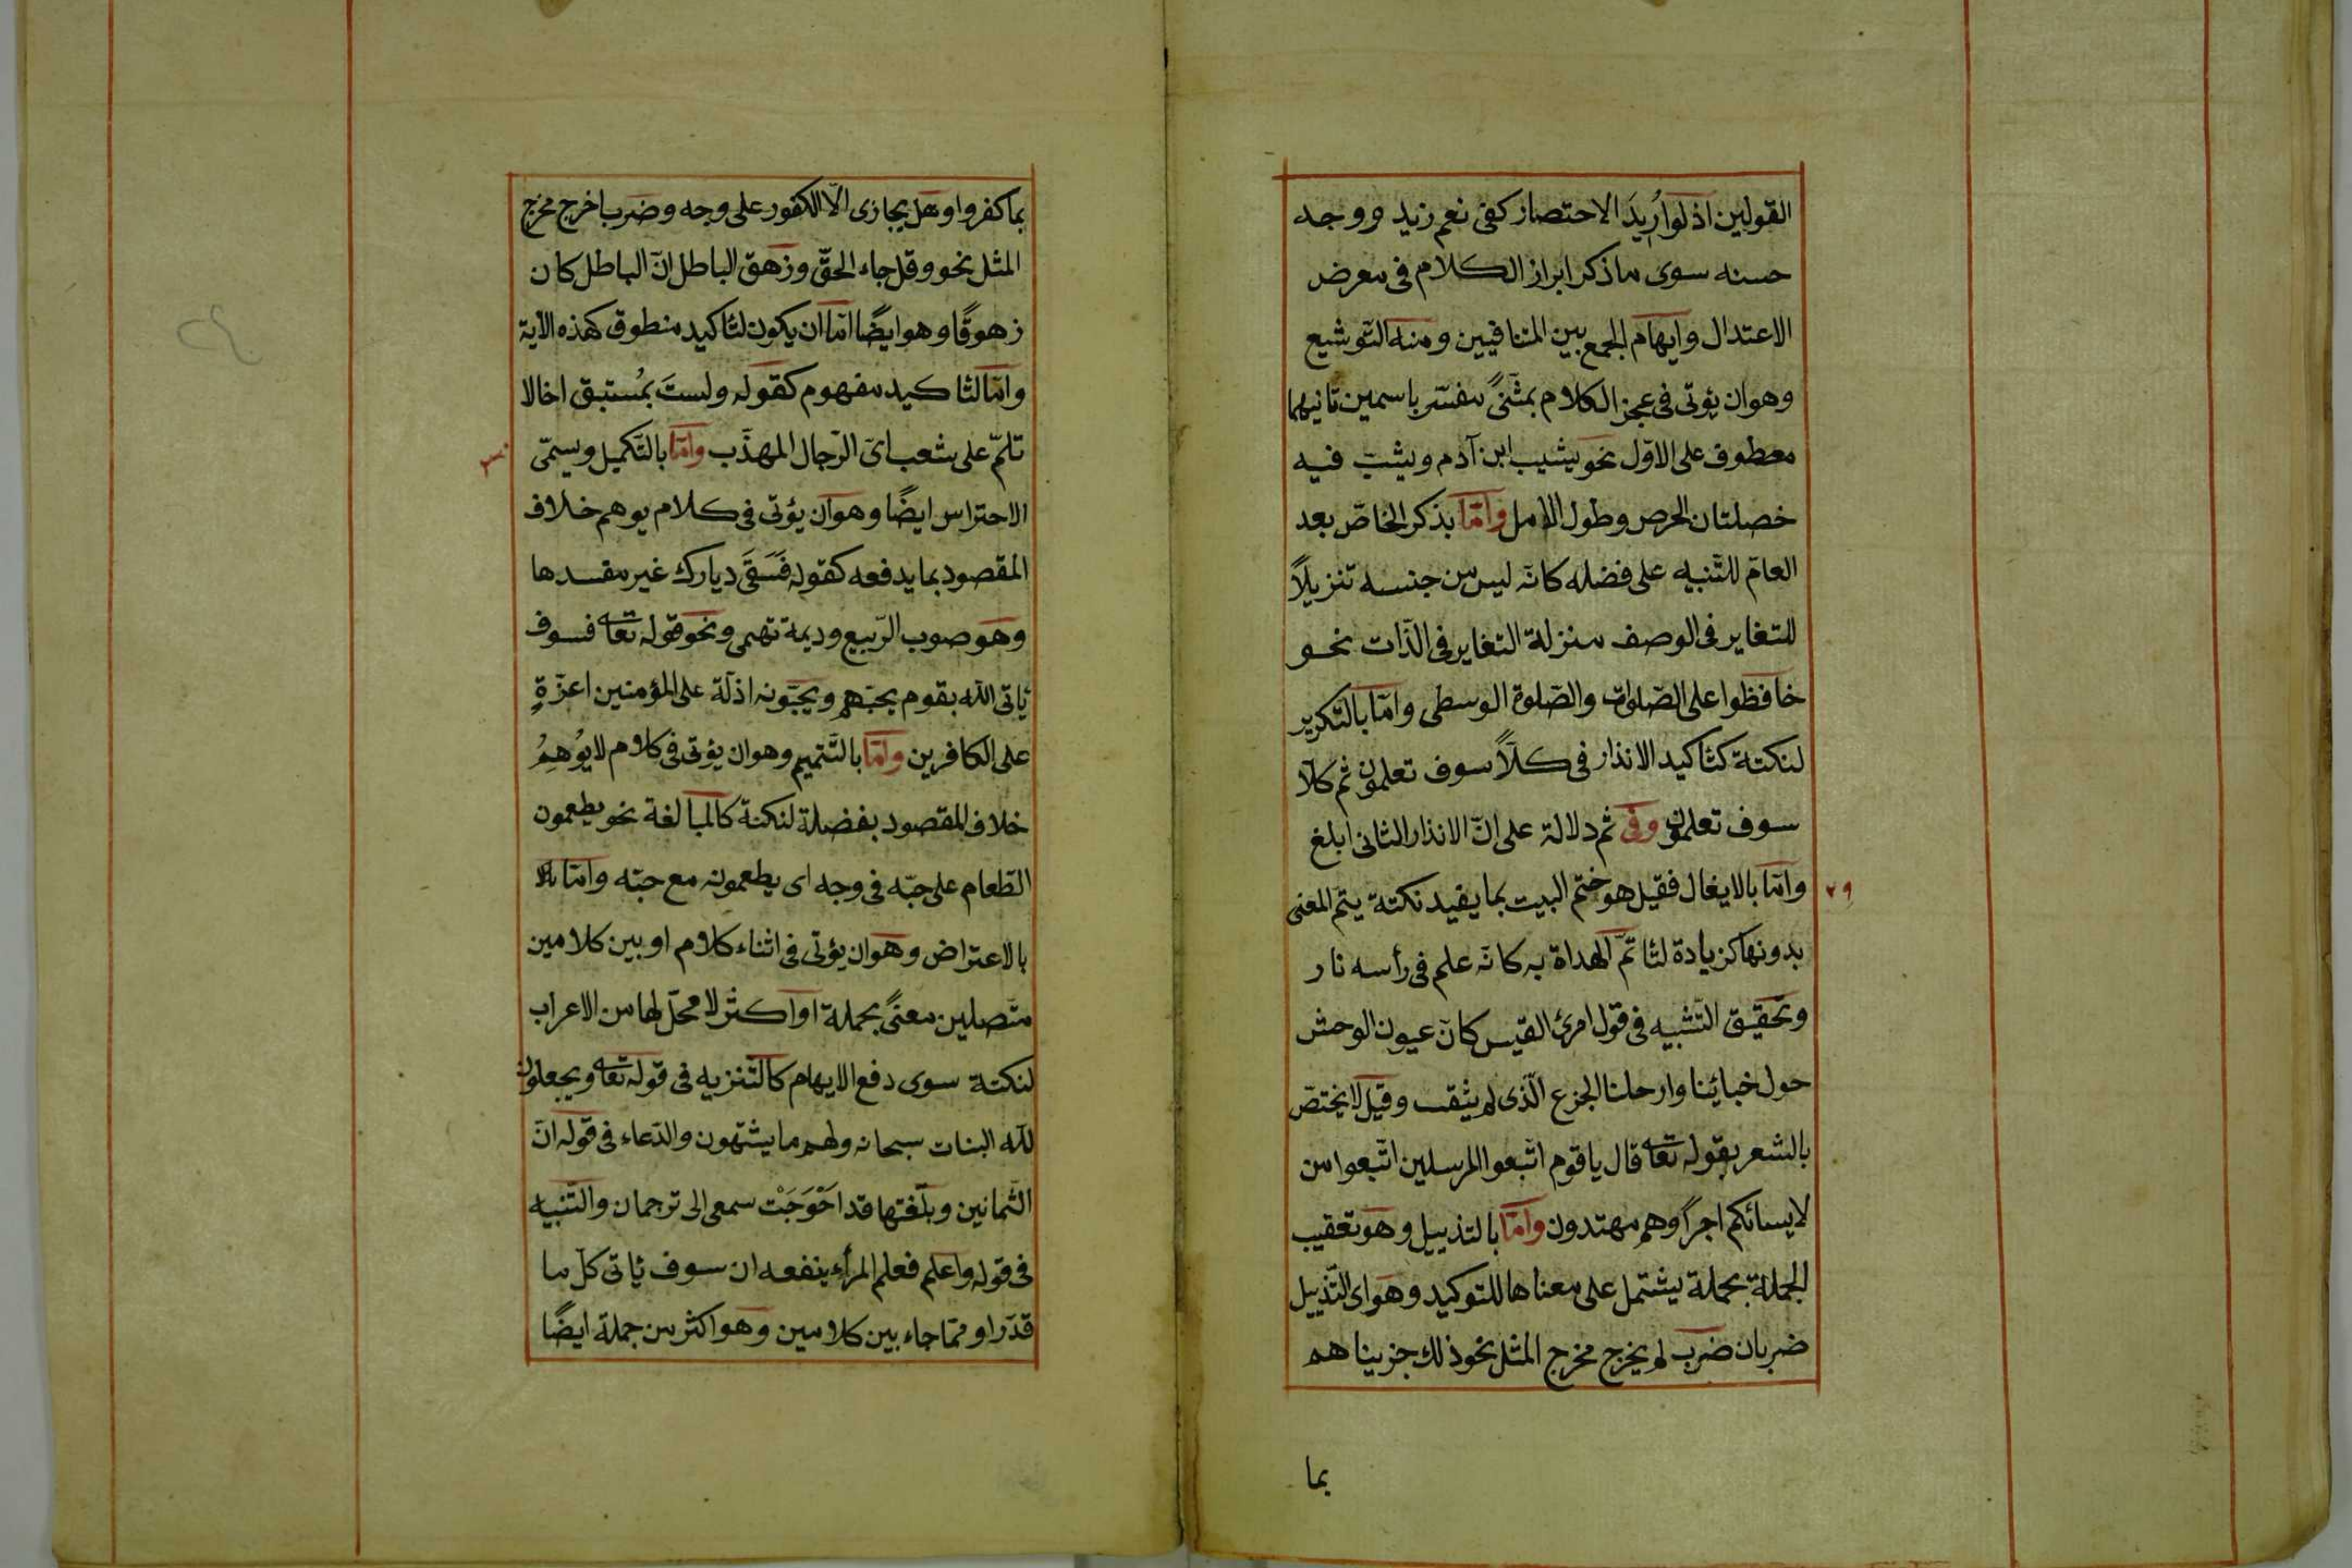 القولين اذ لو اُرِيدَ الاختصار كفى نعم زيد ووجه
حسنه سوى ما ذكر ابراز الكلام فى معرض
الاعتدال وايهام الجمع بين المتنافيين ومنه التّوشيع
وهو ان يؤتى فى عجز الكلام بمثنًى مفسّر باسمين ثانيهما
معطوف على الاوّل نحو يشيب ابن آدم ويشبّ فيه
خصلتان الحرص وطول الامل وامّا بذكر الخاصّ بعد
العامّ للتّنبيه على فضله كانّه ليس من جنسه تنزيلاً
للتغاير فى الوصف منزلة التغاير فى الذّات نحو
حافظوا على الصّلوات والصّلوة الوسطى وامّا بالتّكرير
لنكتة كتاكيد الانذار فى كلاّ سوف تعلمون ثم كلاّ
سوف تعلمون وفى ثم دلالة على انّ الانذار الثانى ابلغ
وامّا بالايغال فقيل هو ختم البيت بما يفيد نكتة يتمّ المعنى
بدونها كزيادة لتاتمّ الهداة به كانّه علم فى رأسه نار
وتحقيق التّشبيه فى قول امرئ القيس كانّ عيون الوحش
حول خبائنا وارحلنا الجزع الّذى لم يثقب وقيل لا يختصّ
بالشعر بقوله تعا قال يا قوم اتّبعوا المرسلين اتّبعوا من
لا يسائلكم اجرًا وهم مهتدون وامّا بالتذييل وهو تعقيب
الجملة بجملة يشتمل على معناها للتوكيد وهو اى التّذييل
ضربان ضرب لم يخرج مخرج المثل نحو ذلك جزيناهم
بما
٢٩
بما كفروا وهل يجازى الّا الكفور على وجه وضرب اخرج مخرج
المثل نحو وقل جاء الحقّ وزهق الباطل انّ الباطل كان
زهوقًا وهو ايضًا امّا ان يكون لتاكيد منطوق كهذه الآية
وامّا لتاكيد مفهوم كقوله ولستَ بمُستبق اخا لا
تلمّه على شعث اىّ الرّجال المهذّب وامّا بالتّكميل ويسمّى
الاحتراس ايضًا وهو ان يؤتى فى كلام يوهم خلاف
المقصود بما يدفعه كقوله فَسَقَى ديارك غير مفسدها
وهو صوب الرّبيع وديمة تهمى ونحو قوله تعا فسوف
ياتى اللّه بقوم يحبّهم ويحبّونه اذلّة على المؤمنين اعزّةٍ
على الكافرين وامّا بالتّتميم وهو ان يؤتى فى كلام لا يُوهِمُ
خلاف المقصود بفضلة لنكتة كالمبالغة نحو يطعمون
الطّعام على حبّه فى وجه اى يطعمونه مع حبّه وامّا
بالاعتراض وهو ان يؤتى فى اثناء كلام او بين كلامين
متّصلين معنًى بجملة او اكثر لا محلّ لها من الاعراب
لنكتة سوى دفع الايهام كالتّنزيه فى قوله تعا ويجعلون
للّه البنات سبحانه ولهم ما يشتهون والدّعاء فى قوله انّ
الثّمانين وبلّغتها قد احْوَجَتْ سمعى الى ترجمان والتّنبيه
فى قوله واعلم فعلم المرأ ينفعه ان سوف ياتى كلّ ما
قدّرا وممّا جاء بين كلامين وهو اكثر من جملة ايضًا